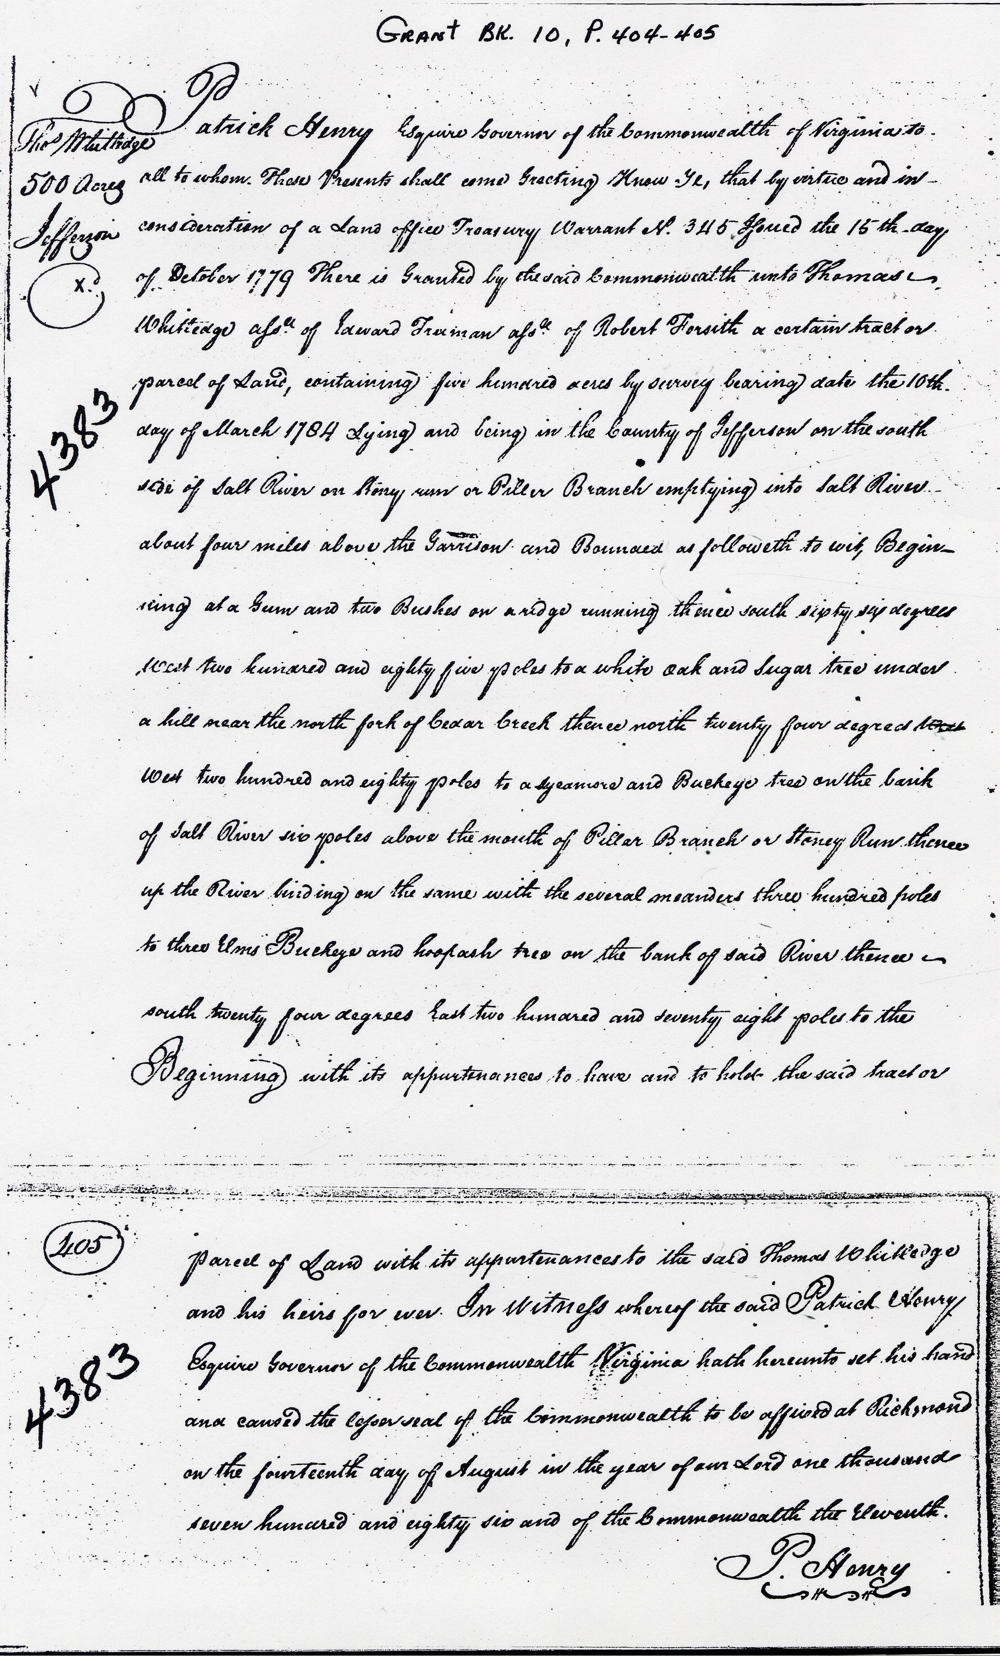 GRANT BK. 10, P. 404-405
Thos Whittidge
500 Acres
Jefferson
x.d
4383
Patrick Henry Esquire Governor of the Commonwealth of Virginia to
all to whom These Presents shall come Greeting Know Ye, that by virtue and in
consideration of a Land office Treasury Warrant N. 345 Issued the 15th day
of October 1779 There is Granted by the said Commonwealth unto Thomas
Whitledge assee of Edward Freeman assee of Robert Forsith a certain tract or
parcel of Land, containing five hundred acres by survey bearing date the 10th
day of March 1784 Lying and being in the County of Jefferson on the south
side of Salt River on Stoney run or Piller Branch emptying into Salt River
about four miles above the Garrison and Bounded as followeth to wit, Begin-
ning at a Gum and two Bushes on a ridge running thence south sixty six degrees
West two hundred and eighty five poles to a white oak and Sugar tree under
a hill near the north fork of Cedar Creek thence north twenty four degrees West
West two hundred and eighty poles to a sycamore and Buckeye tree on the bank
of Salt River six poles above the mouth of Pillar Branch or Stoney Run thence
up the River binding on the same with the several meanders three hundred poles
to three Elms Buckeye and hoopash tree on the bank of said River thence
south twenty four degrees East two hundred and seventy eight poles to the
Beginning with its appurtenances to have and to hold the said tract or
405
4383
parcel of Land with its appurtenances to the said Thomas Whitledge
and his heirs for ever In Witness whereof the said Patrick Henry
Esquire Governor of the Commonwealth Virginia hath hereunto set his hand
and caused the lesser seal of the Commonwealth to be affixed at Richmond
on the fourteenth day of August in the year of our Lord one thousand
seven hundred and eighty six and of the Commonwealth the Eleventh.
P. Henry